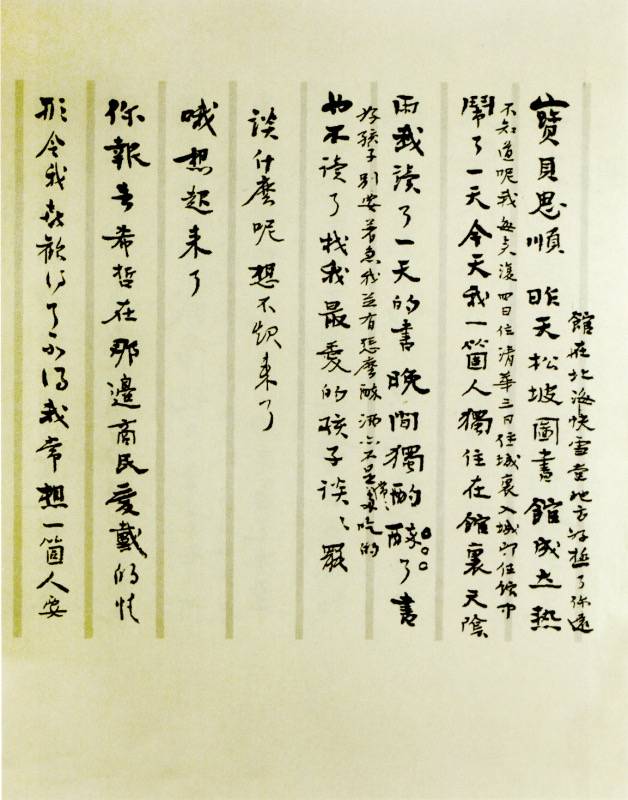 館在北海快雪堂地方好極了你還
寶貝思順 昨天松坡圖書館成立熱
不知道呢我每來復四日住清華三日住城裏入城即住館中
鬧了一天今天我一箇人獨住在館裏天陰
雨我讀了一天的書晚間獨酌醉了書
好孩子別要著急我並有怎麼醉酒亦不是常常多吃的
也不讀了找我最愛的孩子談談罷
談什麼呢想不起來了
哦想起來了
你報告希哲在那邊商民愛戴的情
形令我喜歡得了不得我常想一箇人要